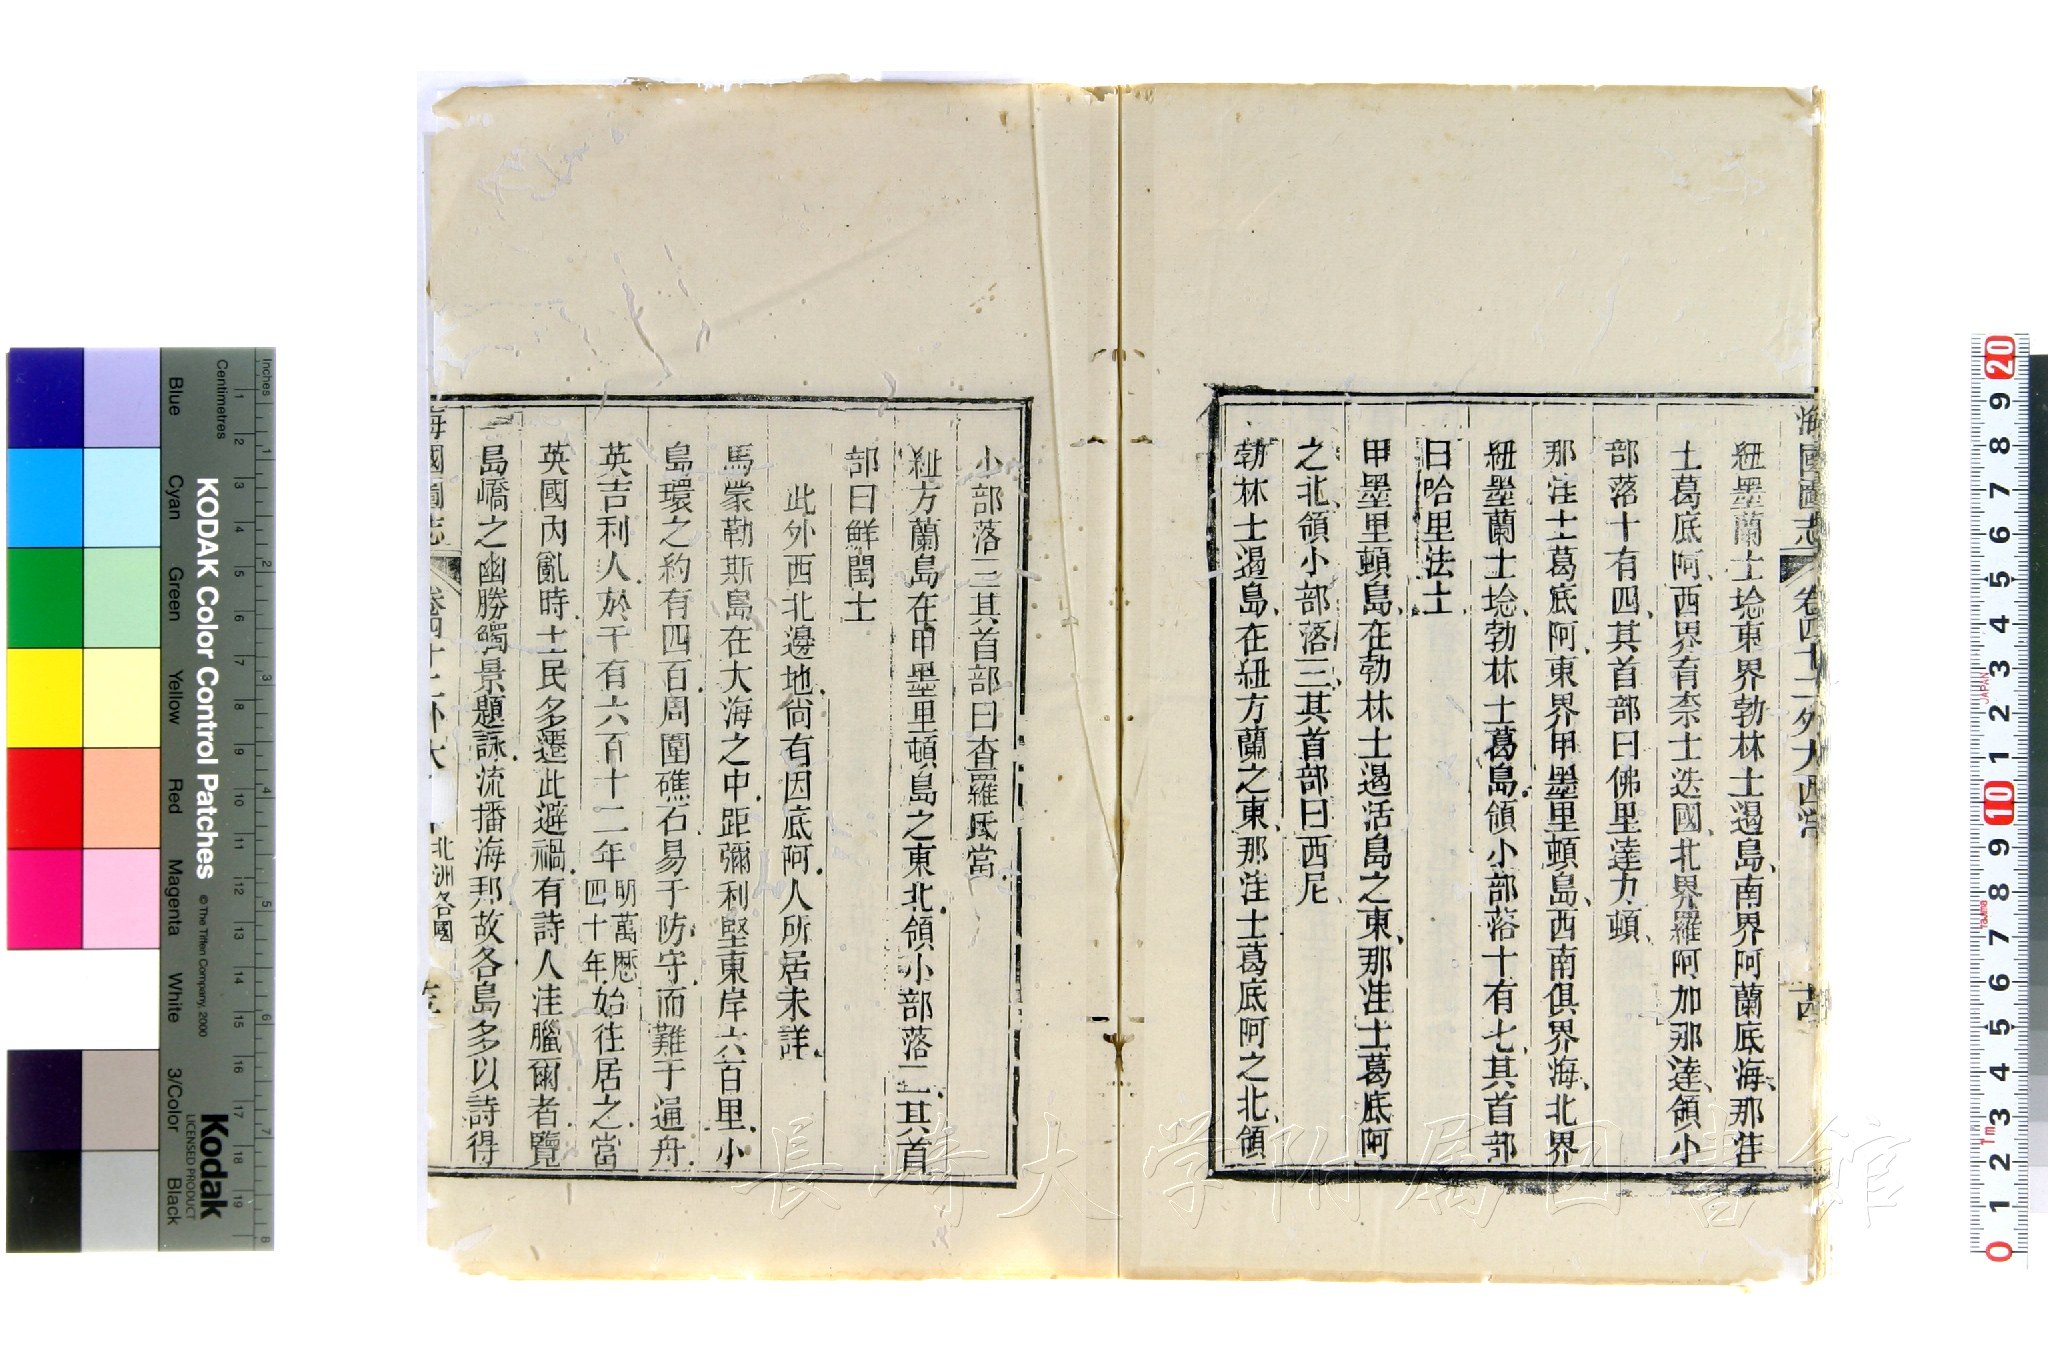 海國圖志 卷四十二外大西洋
紐墨蘭士埝東界勃林士遏島南界阿蘭底海那洼
士葛底阿西界育奈士迭國北界羅阿加那達領小
部落十有四其首部曰佛里達力頓
那洼士葛底阿東界甲墨里頓島西南俱界海北界
紐墨蘭士埝勃林士葛島領小部落十有七其首部
曰哈里法士
甲墨里頓島在勃林士遏活島之東那洼士葛底阿
之北領小部落三其首部曰西尼
勃林士遏島在紐方蘭之東那洼士葛底阿之北領
小部落三其首部曰查羅氐當
紐方蘭島在甲墨里頓島之東北領小部落二其首
部曰鮮閏士
此外西北邊地尙有因底阿人所居未詳
馬蒙勒斯島在大海之中距彌利堅東岸六百里小
島環之約有四百周圍礁石易于防守而難于通舟
英吉利人於千有六百十二年明萬厯四十年始往居之當
英國內亂時士民多遷此避禍有詩人洼臘爾者覽
島嶠之幽勝觸景題詠流播海邦故各島多以詩得
海國圖志 卷四十二外大 北洲各國
KODAK Color Control Patches
© The Tiffen Company, 2000
Kodak
LICENSED PRODUCT
Inches
Centimetres
Blue
Cyan
Green
Yellow
Red
Magenta
White
3/Color
Black
長崎大学附属図書館
JAPAN